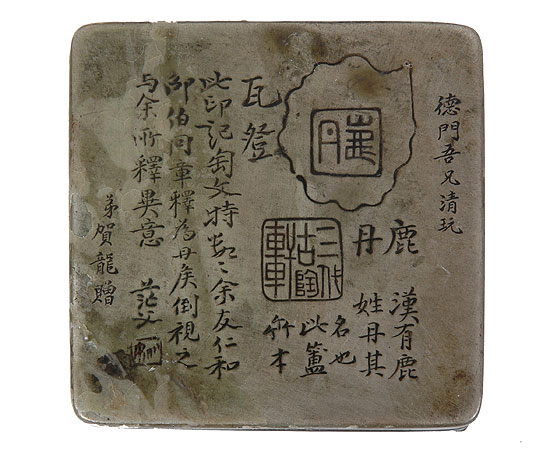 德門吾兄清玩
鹿丹
鹿丹
漢有鹿
姓丹其
名也
此簠
齋本
三代古陶軒
瓦登
此印記匋文特 余友仁和
邵伯同章釋為丹矦倒視之
与余所釋異意 茫父
弟賀龍贈